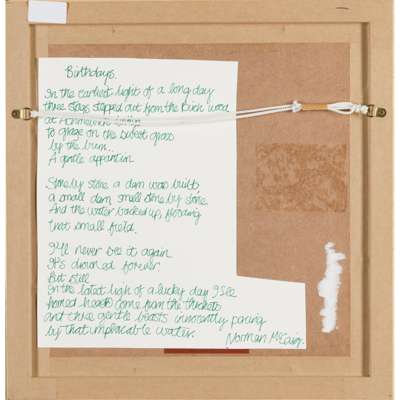 Birthdays.
In the earliest light of a long day
three stags stepped out from the birch wood
at Achmelvich
to graze on the sweet grass
by the burn.
A gentle apparition.
Stone by stone a dam was built,
a small dam, small stone by stone.
And the water backed up, flooding
that small field.
I'll never see it again.
It's drowned forever
But still
In the latest light of a lucky day I see
horned heads come from the thickets
and three gentle beasts innocently pacing
by that implacable water.
Norman McCaig.